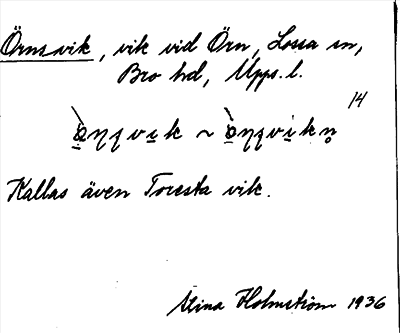 Örnsvik, vik vid Örn, Lossa sn,
Bro hd, Upps. l.
14
Kallas även Toresta vik.
Stina Holmström 1936